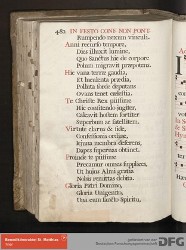 482 IN FESTO CONF. NON PONT.
Rumpendo nexum vinculi.
Anni recurso tempore,
Dies illuxit lumine,
Quo Sanctus hic de corpore
Polum migravit præpotens.
Hic vana terræ gaudia,
Et luculenta prædia,
Polluta sorde deputans
Ovans tenet cœlestia.
Te Christe Rex piissime
Hic confitendo jugiter,
Calcavit hostem fortiter
Superbum ac satellitem.
Virtute clarus & fide,
Confessione
Jejuna membra deferens,
Dapes supernas obtinet.
Proinde te piissime
Precamur omnes supplices,
Ut hujus Almi gratia
Nobis remittas debita.
Gloria Patri Domino,
Gloria Unigenito,
Una cum Sancto Spiritu,
DFG